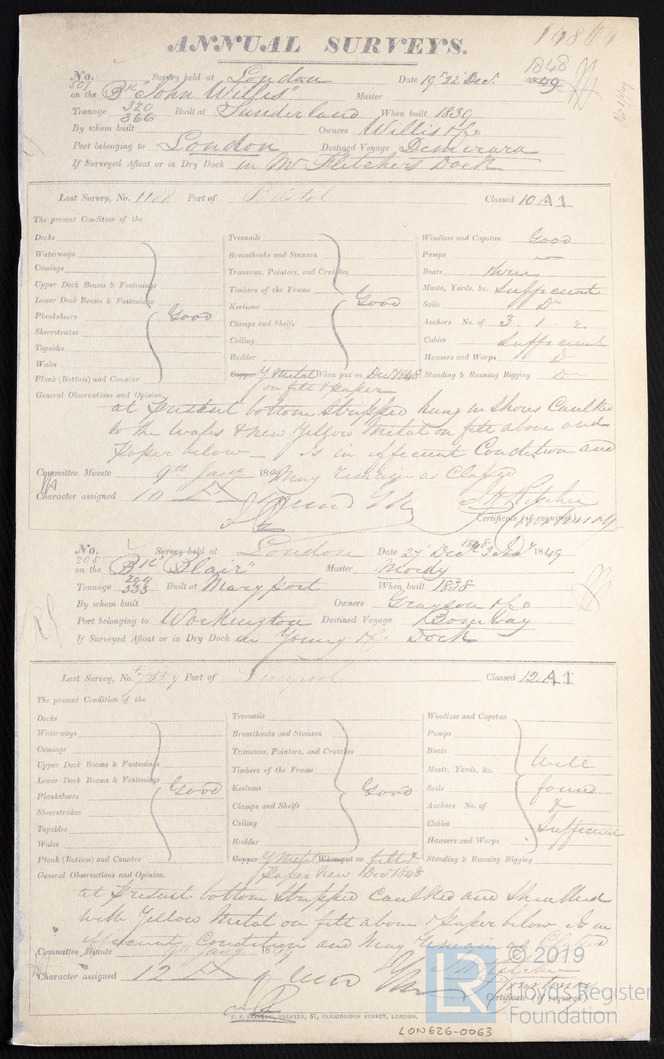 ANNUAL SURVEYS.
1848
No. 501 Survey held at London Date 19th 22 Dec. 1849
on the Bk "John Willis" Master
Tonnage 320 366 Built at Sunderland When built 1830
By whom built Owners Willis & Co
Port belonging to London Destined Voyage Demerara
If Surveyed Afloat or in Dry Dock in Mr Fletchers Dock
Last Survey, No. 1188 Port of Bristol Classed 10 A1
The present Condition of the
Decks Treenails Windlass and Capstan Good
Waterways Breasthooks and Stemson Pumps
Comings Transoms, Pointers, and Crutches Boats three
Upper Deck Beams & Fastenings Timbers of the Frame Masts, Yards, &c. Sufficient
Lower Deck Beams & Fastenings Keelsons Good Sails Do
Planksheers Good Clamps and Shelfs Anchors No. of 3. 1. 2.
Sheerstrakes Ceiling Cables Sufficient
Topsides Rudder Hawsers and Warps Do
Wales Copper Y Metal When put on Decr 1848 Standing & Running Rigging Do
Plank (Bottom) and Counter on felt & paper
General Observations and Opinion,
at Present bottom Stripped hung in Shores Caulked
to the Wales & new Yellow Metal on felt above and
Paper below _ Is in efficient Condition and
Committee Minute 9th Jany 1849 May remain as Classed
Character assigned 10 A
Certificate (if required)
No. 208 Survey held at London Date 27 Decr 1848 3 Jany 1849
on the Bk "Blair" Master Mordy
Tonnage 333 Built at Maryport When built 1838
By whom built Owners Grayson & Co
Port belonging to Workington Destined Voyage Bombay
If Surveyed Afloat or in Dry Dock in Young & Co Dock
Last Survey, No. Port of Liverpool Classed 12 A1
The present Condition of the
Decks Treenails Windlass and Capstan
Waterways Breasthooks and Stemson Pumps
Comings Transoms, Pointers, and Crutches Boats
Upper Deck Beams & Fastenings Timbers of the Frame Masts, Yards, &c. Well
Lower Deck Beams & Fastenings Keelsons Good Sails found
Planksheers Good Clamps and Shelfs Anchors No. of &
Sheerstrakes Ceiling Cables Sufficient
Topsides Rudder Hawsers and Warps
Wales Copper Y Metal When put on felt & Standing & Running Rigging
Plank (Bottom) and Counter Paper New Decr 1848
General Observations and Opinion,
at Present bottom Stripped Caulked and Sheathed
with Yellow Metal on felt above & Paper below Is in
efficient Condition and May remain as Classed
Committee Minute 9th Jany 1849
Character assigned 12 A
Certificate (if required)
PRINTER, 57, FARRINGDON STREET, LONDON.
LON626-0063
© 2019
LR Lloyd's Register
Foundation